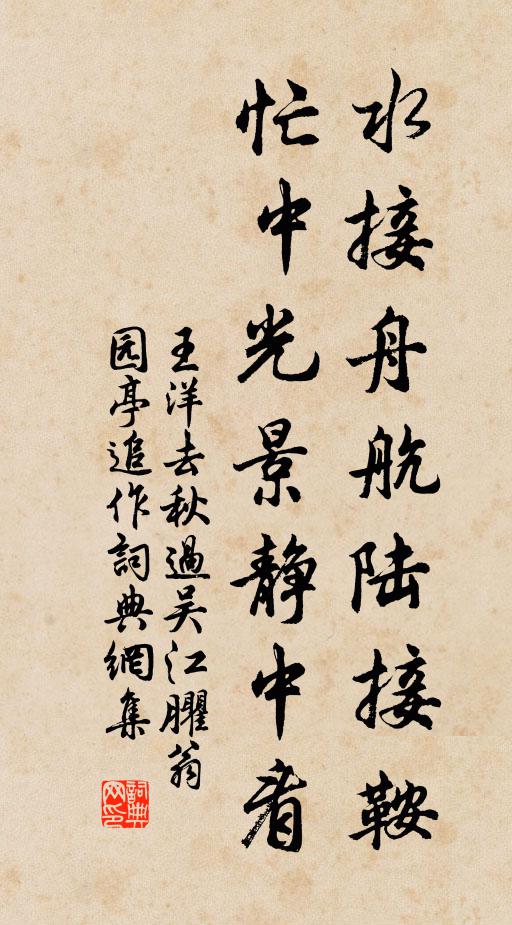 水接舟航陆接鞍
忙中光景静中看
王洋去秋過吴江臞翁
园亭追作詞典網集
詞典网印